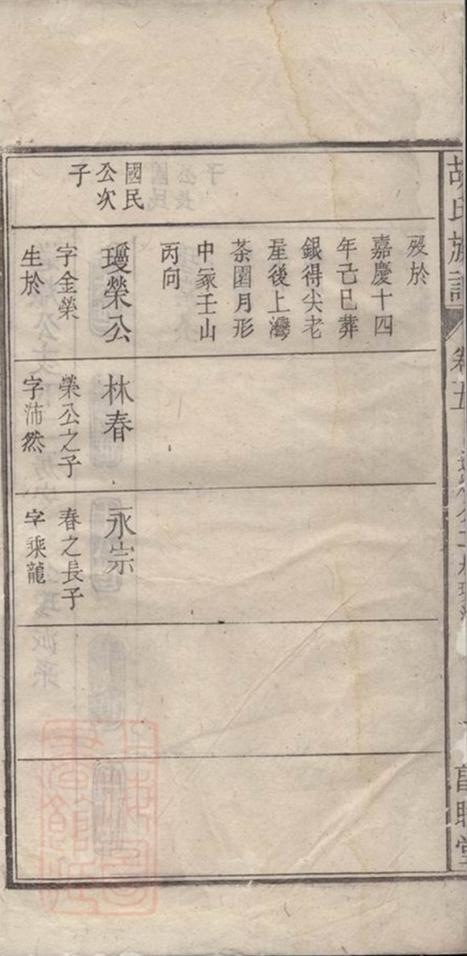 胡氏族譜
卷五
國民
公次
子
歿於
嘉慶十四
年己巳葬
銀得尖老
屋後上灣
茶園月形
中冡壬山
丙向
瓊榮公
字金榮
生於
林春
榮公之子
字沛然
永宗
春之長子
字乘龍